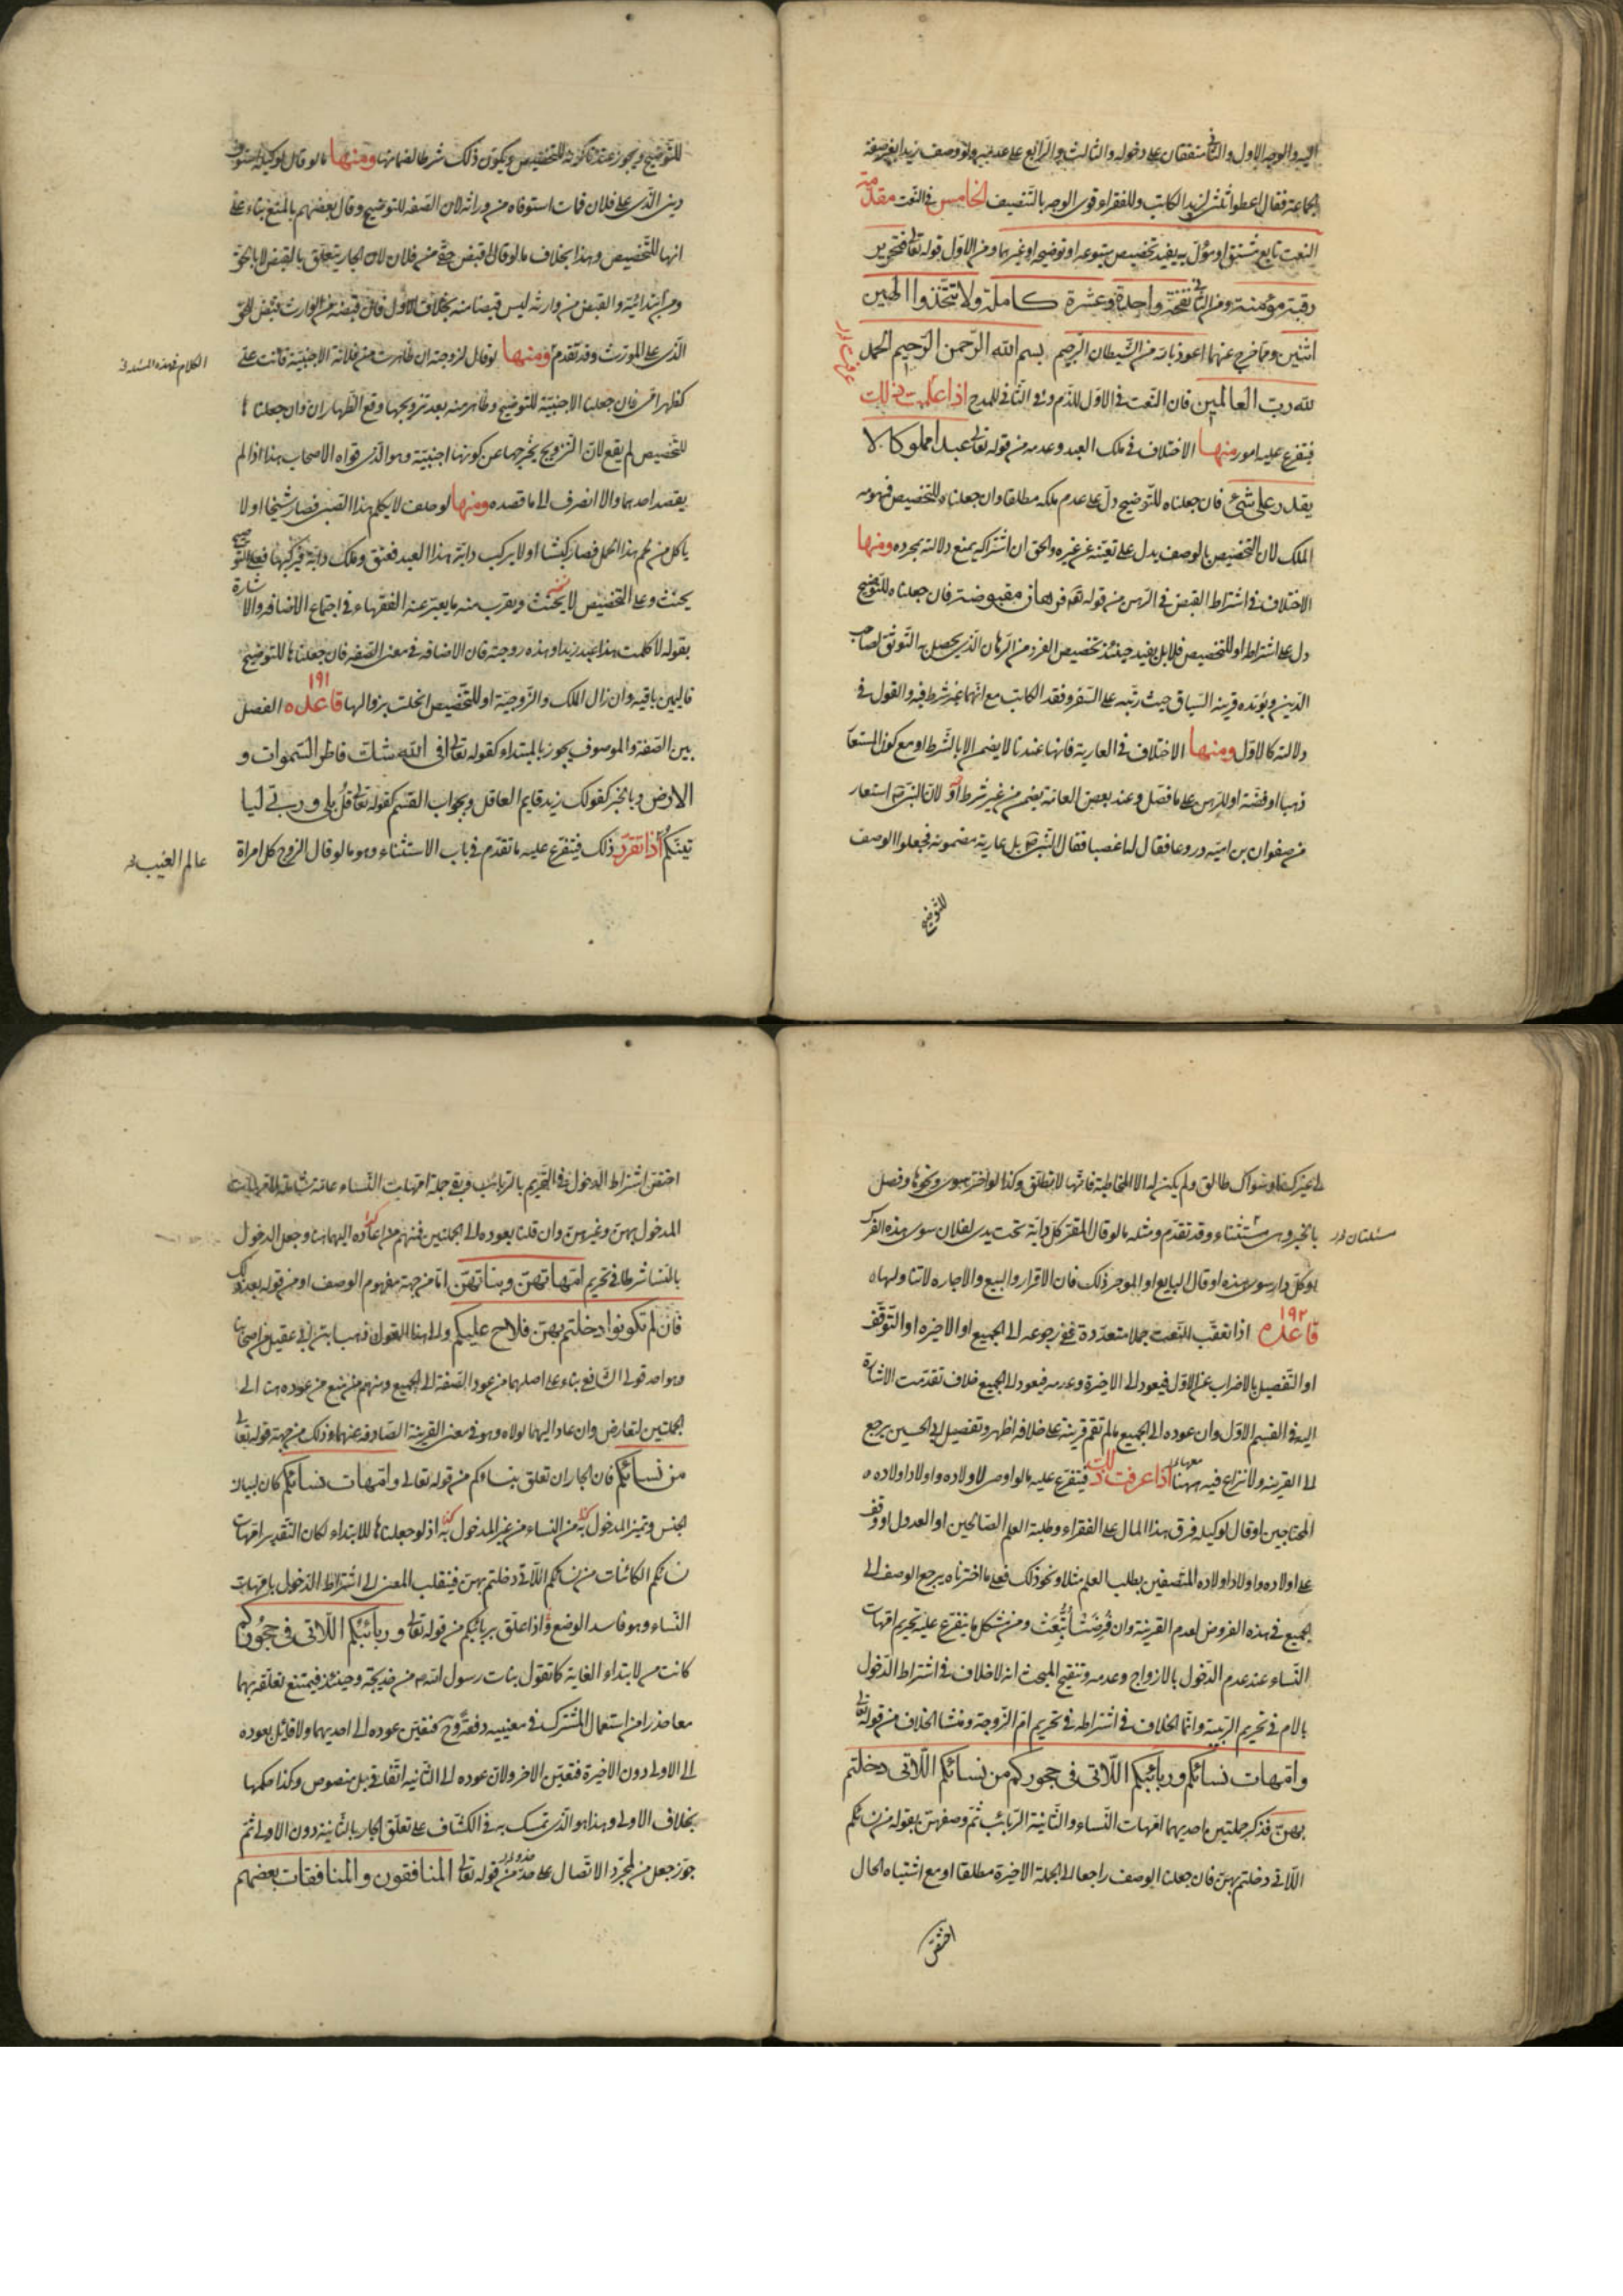 اليه والوجه الاول والثانی متفقان علی دخوله والثالث والرابع علی عدمه ولو وصف زيدا بغير صفة
الجماعة فقال اعطوا ثلثی لزيد الكاتب وللفقراء قوی الوجه بالتنصيف الخامس فی النعت مقدمة
النعت تابع مشتق او مؤل به يفيد تخصيص متبوعه او توضيحه او غيرهما ومن الاول قوله تعالی فتحرير
رقبة مؤمنة ومن الثانی نفخة واحدة وعشرة كاملة ولا تتخذوا الهين
اثنين ومما خرج عنهما اعوذ بالله من الشيطان الرجيم بسم الله الرحمن الرحيم الحمد
لله رب العالمين فان النعت فی الاول للذم وفی الثانی للمدح اذا علمت ذلك
فيتفرع عليه امور منها الاختلاف فی ملك العبد وعدمه من قوله تعالی عبدا مملوكا لا
يقدر علی شئ فان جعلناه للتوضيح دل علی عدم ملكه مطلقا وان جعلناه للتخصيص فمفهومه
الملك لان التخصيص بالوصف يدل علی تعينه عن غيره والحق ان اشتراكه يمنع دلالته بمجرده ومنها
الاختلاف فی اشتراط القبض فی الرهن من قوله تعالی فرهان مقبوضة فان جعلناه للتوضيح
دل علی اشتراطه او للتخصيص فلا بل يفيد حينئذ تخصيص الفرد من الرهان الذی يحصل به التوثق لصاحب
الدين ويؤيده قرينة السياق حيث رتبه علی السفر وفقد الكاتب مع انهما غير شرط فيه والقول فی
دلالته كالاول ومنها الاختلاف فی العارية فانها عندنا لا يضمن الا بالشرط او مع كون المستعار
ذهبا او فضة او للرهن علی ما فصل وعند بعض العامة يضمن من غير شرط لان النبی ص استعار
من صفوان بن امية دروعا فقال له اغصبا فقال النبی ص بل عارية مضمونة فجعلوا الوصف
للتوضيح
للتوضيح ويجوز عندنا كونه للتخصيص ويكون ذلك شرطا لضمانها ومنها ما لو قال لوكيله استوف
دينی الذی علی فلان فمات استوفاه من وراثه لان الصفة للتوضيح وقال بعضهم بالمنع بناء علی
انها للتخصيص وهذا بخلاف ما لو قال اقبض حقی من فلان لان الجار يتعلق بالقبض لا بالحق
ومن ابتدائية والقبض من وارثه ليس قبضا منه بخلاف الاول فان قبضه من الوارث قبض للحق
الذی علی المورث وقد تقدم ومنها لو قال لزوجته ان ظاهرت من فلانة الاجنبية فانت علی
الكلام فی هذه المسئلة
كظهر امی فان جعلنا الاجنبية للتوضيح وظاهر منه بعد تزويجها وقع الظهاران وان جعلناها
للتخصيص لم يقع لان التزويج يخرجها عن كونها اجنبية وهو الذی قواه الاصحاب هذا اذا لم
يقصد احدهما والا انصرف الی ما قصده ومنها لو حلف لا يكلم هذا الصبی فصار شيخا او لا
ياكل من لحم هذا الحمل فصار كبشا او لا يركب دابة هذا العبد فعتق وملك دابة فركبها فعلی التوضيح
يحنث وعلی التخصيص لا يحنث ويقرب منه ما يعبر عنه الفقهاء فی اجتماع الاضافة والاشارة
بقوله لا كلمت هذا عبد زيد او هذه زوجته فان الاضافة فی معنی الصفة فان جعلناها للتوضيح
فاليمين باقية وان زال الملك والزوجية او للتخصيص انحلت بزوالها قاعده ١٩١ الفصل
بين الصفة والموصوف يجوز بالمبتداء كقوله تعالی افی الله شك فاطر السموات و
الارض وبالخبر كقولك زيد قايم العاقل وبجواب القسم كقوله تعالی قل بلی وربی لتا
تينكم اذا تقرر ذلك فيتفرع عليه ما تقدم فی باب الاستثناء وهو ما لو قال الزوج كل امراة
عالم الغيب
لی غيرك او سواك طالق ولم يكن له الا المخاطبة فانها لا تطلق وكذا لو اخر سوی ونحوها وفصل
بالخبر وهی استثناء وقد تقدم ومثله ما لو قال المقر كل دابة تحت يدی لفلان سوی هذه الفرس
مسئلتان
او كل دار سوی هذه او قال البايع او الموجر ذلك فان الاقرار والبيع والاجارة لا تتناولها
قاعده ١٩٢ اذا تعقب النعت جملا متعددة ففی رجوعه الی الجميع او الاخيرة او التوقف
او التفصيل بالاضراب عن الاول فيعود الی الاخيرة وعدمه فيعود الی الجميع خلاف تقدمت الاشارة
اليه فی القسم الاول وان عوده الی الجميع ما لم تقم قرينة علی خلافه اظهر وتفصيل ابی الحسين يرجع
الی القرينة ولا نزاع فيه ههنا اذا عرفت ذلك فيتفرع عليه ما لو اوصی لاولاده واولاد اولاده
المحتاجين او قال لوكيله فرق هذا المال علی الفقراء وطلبة العلم الصالحين او العدول او وقف
علی اولاده واولاد اولاده المتصفين بطلب العلم مثلا ونحو ذلك فعلی ما اخترناه يرجع الوصف الی
الجميع فی هذه الفروض لعدم القرينة وان فرضت اتبعت ومن مشكل ما يتفرع عليه تحريم امهات
النساء عند عدم الدخول بالازواج وعدمه وتنقيح المبحث انه لا خلاف فی اشتراط الدخول
بالام فی تحريم الربيبة وانما الخلاف فی اشتراطه فی تحريم ام الزوجة ومنشا الخلاف من قوله تعالی
وامهات نسائكم وربائبكم اللاتی فی حجوركم من نسائكم اللاتی دخلتم
بهن فذكر جملتين احديهما امهات النساء والثانية الربائب ثم وصفهن بقوله من نسائكم
اللاتی دخلتم بهن فان جعلنا الوصف راجعا الی الجملة الاخيرة مطلقا او مع اشتباه الحال
اختص
اختص اشتراط الدخول فی التحريم بالربائب وبقی جملة امهات النساء عامة شاملة لامهات
المدخول بهن وغيرهن وان قلنا بعوده الی الجملتين فمنهم من اعاده اليهما هنا وجعل الدخول
بالنسا شرطا فی تحريم امهاتهن وبناتهن اما من جهة مفهوم الوصف او من قوله بعد ذلك
فان لم تكونوا دخلتم بهن فلا جناح عليكم والی هذا القول ذهب ابن ابی عقيل من اصحابنا
وهو احد قولی الشافعی بناء علی اصلهما من عود الصفة الی الجميع ومنهم من منع من عوده هنا الی
الجملتين لتعارض وان عاد اليهما لولاه وهو فی معنی القرينة الصارفة عنهما وذلك من جهة قوله تعالی
من نسائكم فان الجار ان تعلق بنسائكم من قوله تعالی وامهات نسائكم كان لبيان
الجنس وتميز المدخول بهن من النساء من غير المدخول بهن اذ لو جعلناها للابتداء لكان التقدير امهات
نسائكم الكائنات من نسائكم اللاتی دخلتم بهن فينقلب المعنی الی اشتراط الدخول بامهات
النساء وهو فاسد الوضع واذا علق بربائبكم من قوله تعالی وربائبكم اللاتی فی حجوركم
كانت من لابتداء الغاية كما تقول بنات رسول الله ص من خديجة وحينئذ فيمتنع تعلقه بهما
معا حذرا من استعمال المشترك فی معنييه دفعة وح فتعين عوده الی احديهما ولا قايل بعوده
الی الاولی دون الاخيرة فتعين الاخر ولان عوده الی الثانية اتفاقی بل منصوص وكذا حكمها
بخلاف الاولی وهذا هو الذی تمسك به فی الكشاف علی تعلق الجار بالثانية دون الاولی ثم
جوز جعل من لمجرد الاتصال علی حد من قوله تعالی المنافقون والمنافقات بعضهم